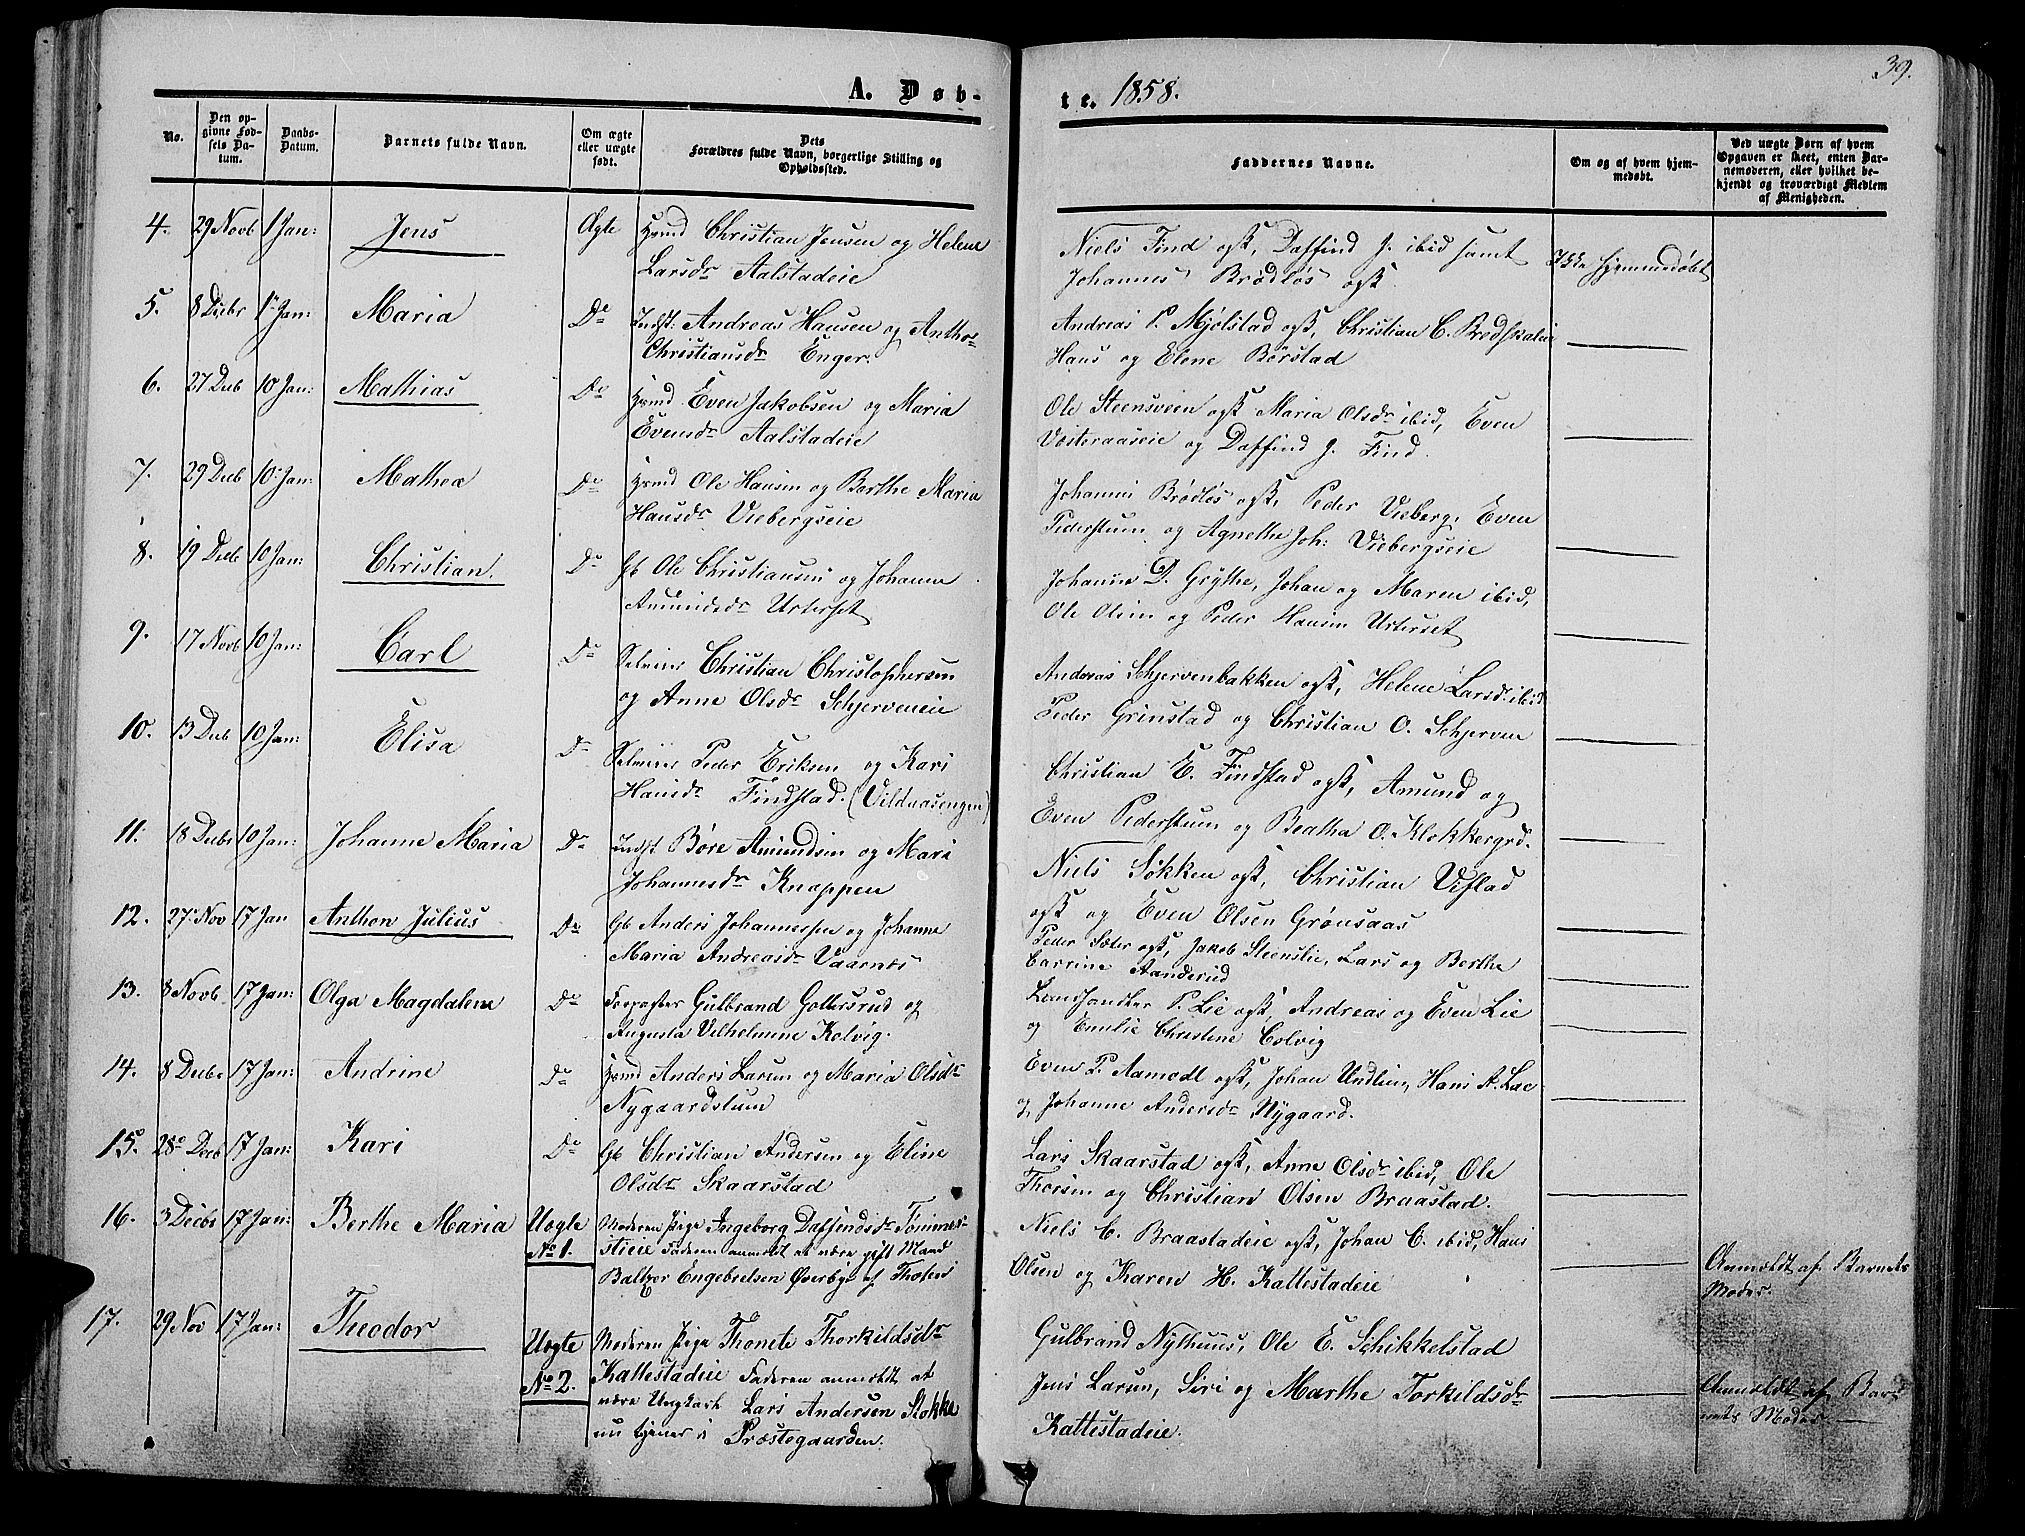 39.
A. Døb-
te. 1858.
No.
Den opgivne Fødsels Datum.
Daabs-Datum.
Barnets fulde Navn.
Om ægte eller uægte født.
Dets Forældres fulde Navn, borgerlige Stilling og Opholdssted.
Faddernes Navne.
Om og af hvem hjemmedøbt.
Ved uægte Børn af hvem Opgaven er skeet, enten Barnemoderen, eller hvilket bekjendt og troværdigt Medlem af Menigheden.
4. 29 Novb 1 Jan: Jens Ægte Hmd Christian Jensen og Helene
Larsdr Aalstadeie
Niels Find ogsk, Daffind J. ibid samt
Johannes Brødløs ogsk
Ikke hjemmedøbt
5. 8 Decbr 1 Jan: Maria Do Indst: Andreas Hansen og Anthe
Christiansdr Enger.
Andreas P. Mjølstad ogsk, Christian C.
Hans og Elene Børstad
6. 27 Decb 10 Jan: Mathias Do Hmd Even Jakobsen og Maria
Evensdr Aalstadeie
Ole Steensveen ogsk Maria Olsdr ibid, Even
Vesteraaseie og Daffind J. Find.
7. 29 Decb 10 Jan: Mathea Do Hmd Ole Hansen og Berthe Maria
Hansdr Viebergseie
Johannes Brødløs ogsk, Peder Vieberg, Even
Pederstuen og Agnethe Joh: Viebergseie
8. 19 Decb 10 Jan: Christian. Do Gb Ole Christiansen og Johanne
Amundsdr Urterset
Johannes D. Grythe, Johan og Maren ibid,
Ole Olsen og Peder Hansen Urterset
9. 17 Novb 10 Jan: Carl Do Selveier Christian Christophersen
og Anne Olsdr Schjerveneie
Andreas Schjervenbakken ogsk, Helene Larsdr ibid
Peder Grinstad og Christian O. Schjerven
10. 13 Decb 10 Jan: Elisa Do Selveier Peder Eriksen og Kari
Hansdr Findstad. (Vildaasengen)
Christian E. Findstad ogsk, Amund og
Even Pederstuen og Beatha O. Klokkergrd.
11. 18 Decbr 10 Jan: Johanne Maria Do Indst Børe Amundsen og Mari
Johannesdr Knappen
Niels Søkken ogsk, Christian Viflad
ogsk og Even Olsen Grønsaas
12. 27 Nov 17 Jan Anthon Julius Do Gb Anders Johannessen og Johanne
Maria Andreasdr Vaarnes
Peder Sæter ogsk, Jakob Steenslie, Lars og Berthe
Carrine Aanderud
13. 8 Novb. 17 Jan: Olga Magdalena Do Forpagter Gulbrand Gottersrud og
Augusta Vilhelmine Kolvig.
Landhandler P. Lie ogsk, Andreas og Even Lie
og Emilie Christine Colvig
14. 8 Decbr 17 Jan: Andrine Do Hmd Anders Larsen og Maria Olsdr
Nygaardstuen
Even P. Aamodt ogsk, Johan Undlien, Hans A. Lae
og Johanne Andersdr Nygaard.
15. 28 Decb 17 Jan: Kari Do Gb Christian Andersen og Eline
Olsdr Skaarstad
Lars Skaarstad ogsk, Anne Olsdr ibid, Ole
Thorsen og Christian Olsen Braastad.
16. 3 Decbr 17 Jan: Berthe Maria Uægte No 1. Moderen Pige Ingeborg Daffindsdr Tømmer-
stieie Faderen anmeldt at være gift Mand
Baltzer Engebretsen Øverbye af Thoten
Niels C. Braastadeie ogsk, Johan C. ibid, Hans
Olsen og Karen H. Kattestadeie
Anmeldt af Barnets
Moder.
17. 29 Nov 17 Jan: Theodor Uægte No 2. Moderen Pige Thonete Thorkildsdr
Kattestadeie Faderen anmeldt at
være Ungkarl Lars Andersen Stokke
nu tjener i Præstegaarden.
Gulbrand Nythuus, Ole E. Schikkelstad
Jens Larsen, Siri og Marthe Torkildsdr
Kattestadeie.
Anmeldt af Bar-
nets Moder